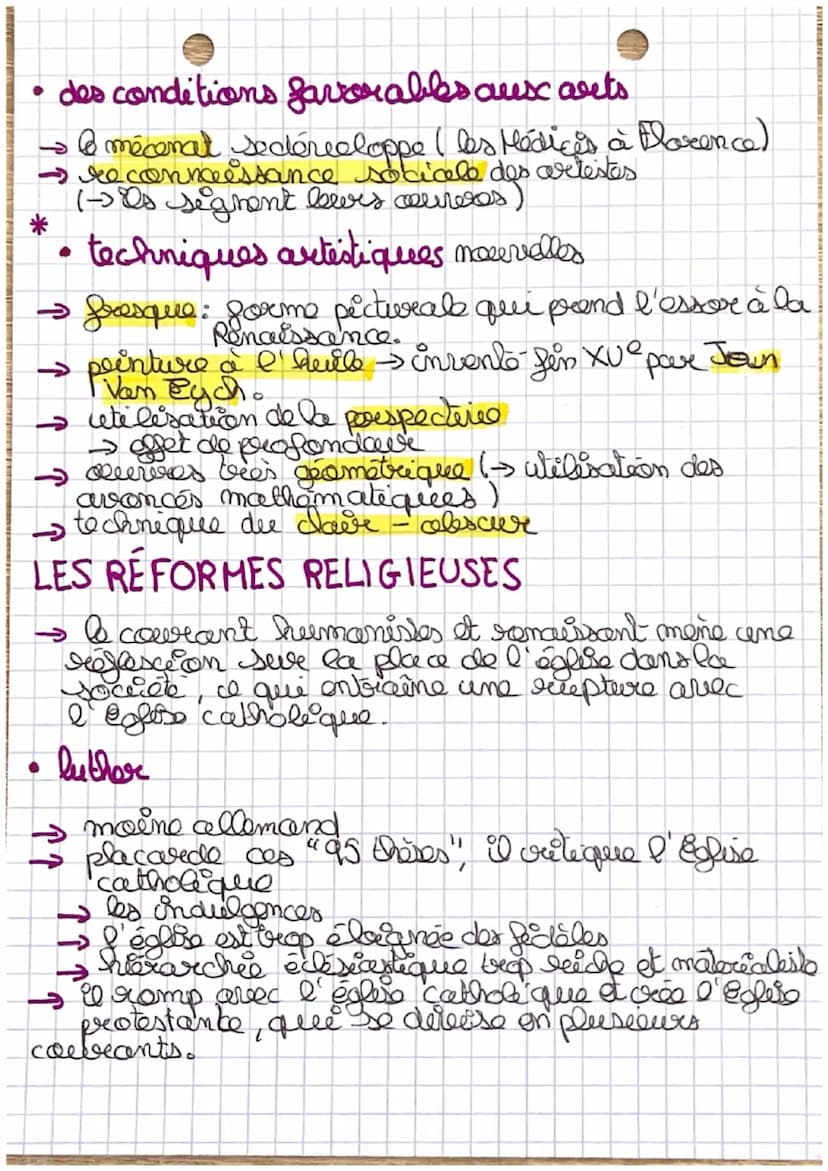 • des conditions favorables aux arts
→ le mécenat se développe ( les Médicis à Florence)
→ reconnaissance sociale des artistes
(→ ils signent leurs oeuvres)
*
• techniques artistiques nouvelles
→ fresque : forme picturale qui prend l'essor à la
Renaissance.
→ peinture à l'huile → inventé fin XVe par Jean
Van Eych.
→ utilisation de la perspective
→ effet de profondeur
→ oeuvres très géométrique (→ utilisation des
avancés mathématiques)
→ technique du claire - obscur
LES RÉFORMES RELIGIEUSES
→ le courant humanistes et renaissant mène une
réflexion sur la place de l'église dans la
société, ce qui entraîne une rupture avec
l'Eglise catholique.
• luther
→ moine allemand
→ placarde ces "95 thèses", il critique l'Eglise
catholique
→ les indulgences
→ l'église est trop éloignée des fidèles
→ hiérarchie éclésiastique trop seide et matérialiste
→ il romp avec l'église catholique et crée l'Eglise
protestante, qui se divise en plusieurs
courants.